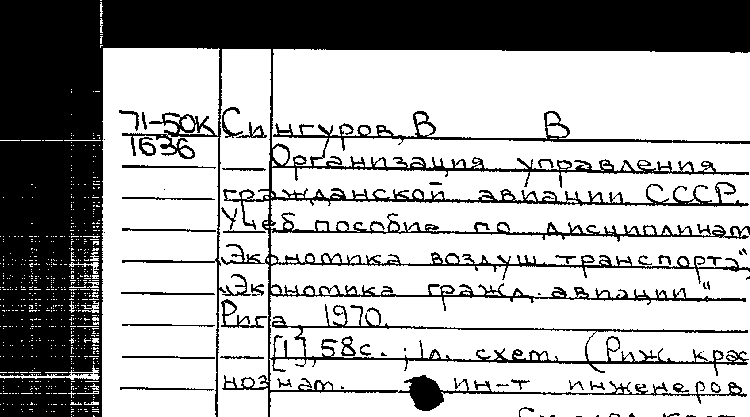 71-50К Сингуров, В В
1636 Организация управления
гражданской авиации СССР.
Учеб пособие по дисциплинам
„Экономика воздуш. транспорта",
„Экономика гражд. авиации."
Рига, 1970.
[1], 58с.; 1л. схем. (Риж. крас
нознам. ин-т инженеров